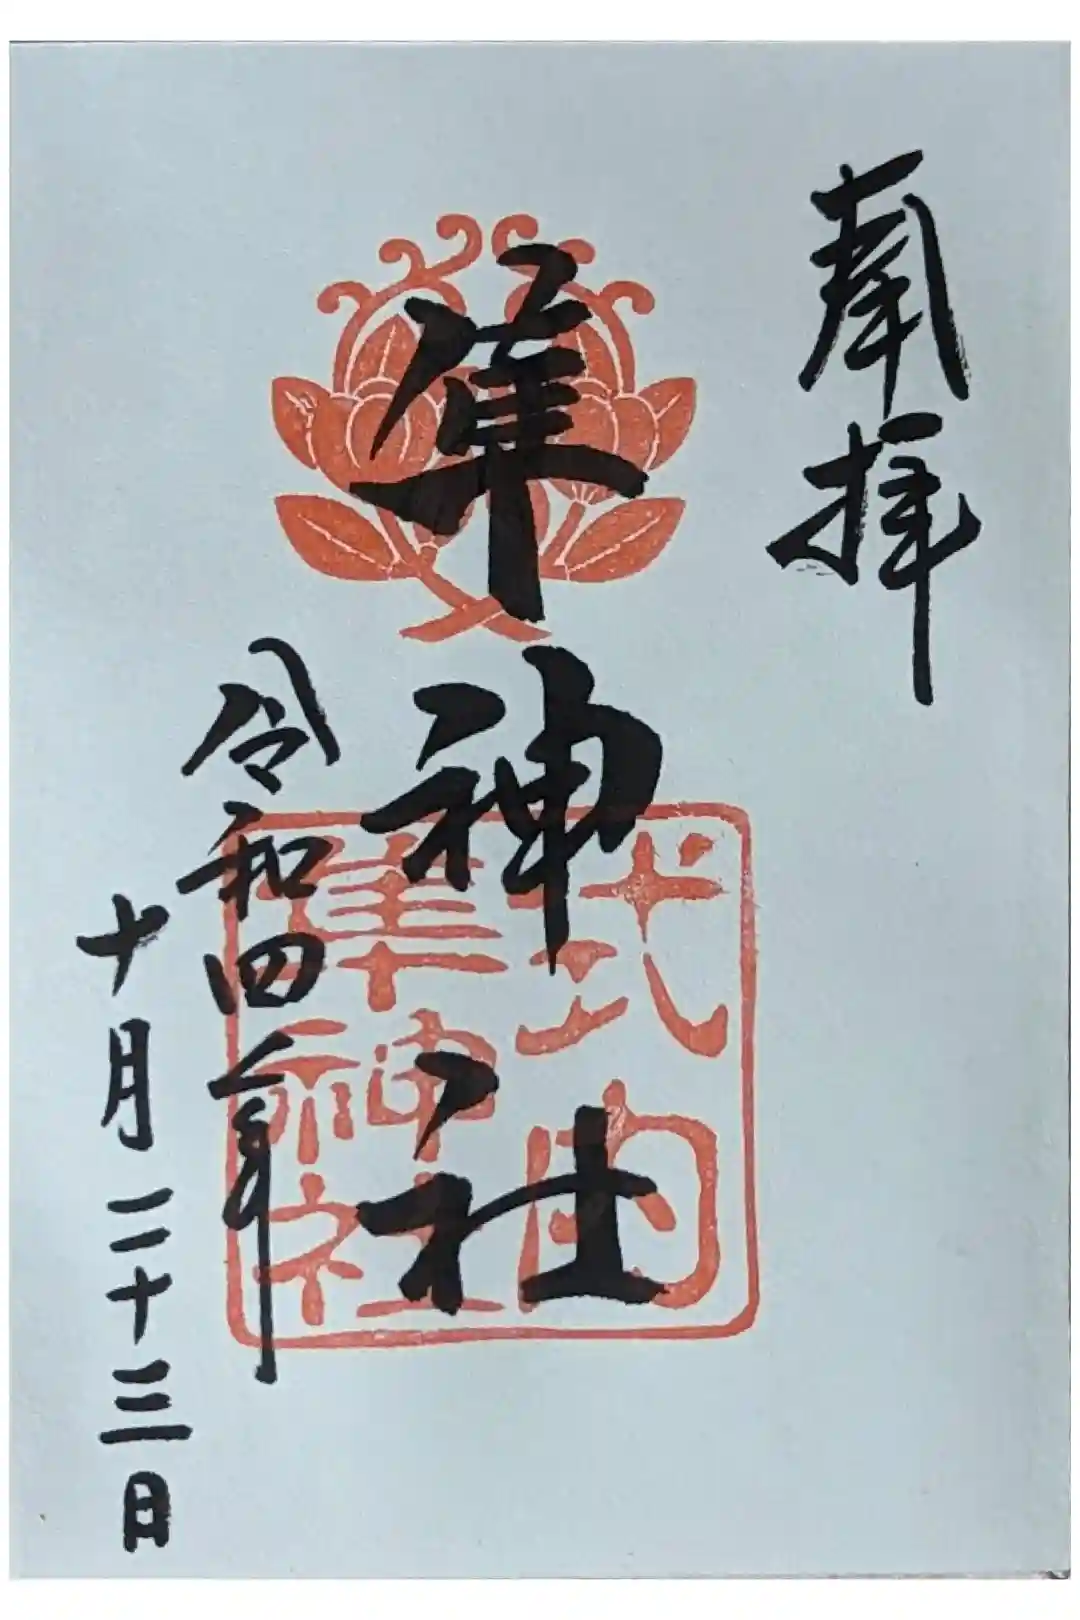 奉拝
隼神社
式内
隼神社
令和四年
十月二十三日